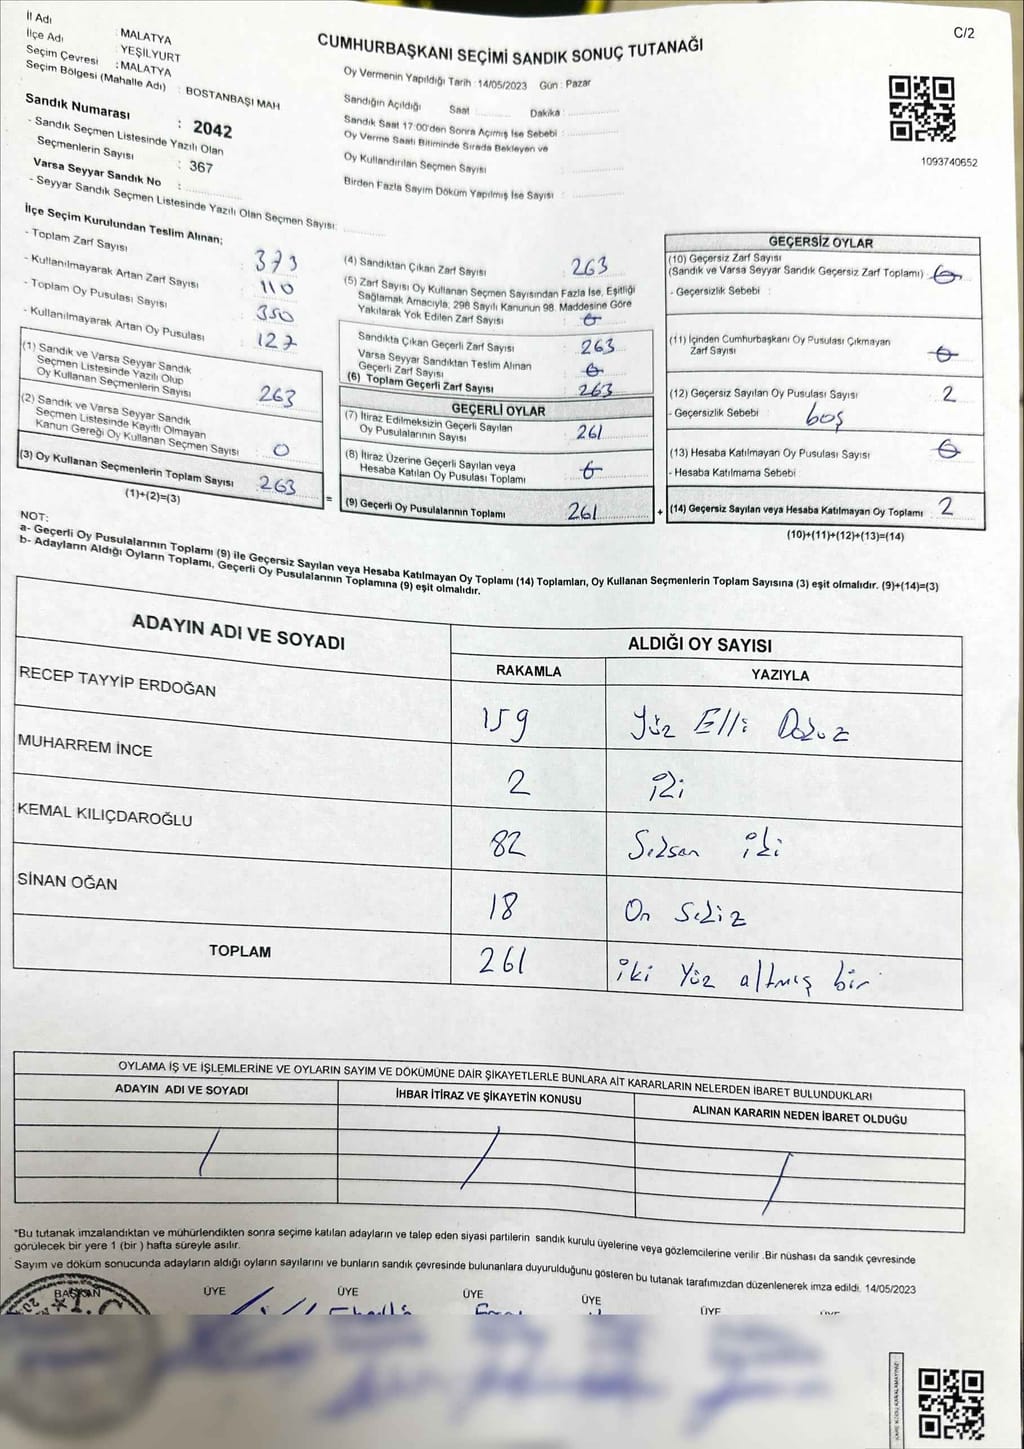 C/2
İl Adı
İlçe Adı : MALATYA
Seçim Çevresi : YEŞİLYURT
Seçim Bölgesi (Mahalle Adı) : MALATYA
: BOSTANBAŞI MAH
Sandık Numarası : 2042
- Sandık Seçmen Listesinde Yazılı Olan
Seçmenlerin Sayısı : 367
Varsa Seyyar Sandık No :
- Seyyar Sandık Seçmen Listesinde Yazılı Olan Seçmen Sayısı:
CUMHURBAŞKANI SEÇİMİ SANDIK SONUÇ TUTANAĞI
Oy Vermenin Yapıldığı Tarih : 14/05/2023 Gün : Pazar
Sandığın Açıldığı Saat : Dakika :
Sandık Saat 17:00'den Sonra Açılmış İse Sebebi :
Oy Verme Saati Bitiminde Sırada Bekleyen ve
Oy Kullandırılan Seçmen Sayısı :
Birden Fazla Sayım Döküm Yapılmış İse Sayısı :
1093740652
İlçe Seçim Kurulundan Teslim Alınan;
- Toplam Zarf Sayısı 373
- Kullanılmayarak Artan Zarf Sayısı 110
- Toplam Oy Pusulası Sayısı 350
- Kullanılmayarak Artan Oy Pusulası 127
(1) Sandık ve Varsa Seyyar Sandık
Seçmen Listesinde Yazılı Olup
Oy Kullanan Seçmenlerin Sayısı 263
(2) Sandık ve Varsa Seyyar Sandık
Seçmen Listesinde Kayıtlı Olmayan
Kanun Gereği Oy Kullanan Seçmen Sayısı 0
(3) Oy Kullanan Seçmenlerin Toplam Sayısı 263
(1)+(2)=(3)
=
(4) Sandıktan Çıkan Zarf Sayısı 263
(5) Zarf Sayısı Oy Kullanan Seçmen Sayısından Fazla İse, Eşitliği
Sağlamak Amacıyla, 298 Sayılı Kanunun 98. Maddesine Göre
Yakılarak Yok Edilen Zarf Sayısı 0
Sandıkta Çıkan Geçerli Zarf Sayısı 263
Varsa Seyyar Sandıktan Teslim Alınan
Geçerli Zarf Sayısı 0
(6) Toplam Geçerli Zarf Sayısı 263
GEÇERLİ OYLAR
(7) İtiraz Edilmeksizin Geçerli Sayılan
Oy Pusulalarının Sayısı 261
(8) İtiraz Üzerine Geçerli Sayılan veya
Hesaba Katılan Oy Pusulası Toplamı 0
(9) Geçerli Oy Pusulalarının Toplamı 261
+
GEÇERSİZ OYLAR
(10) Geçersiz Zarf Sayısı
(Sandık ve Varsa Seyyar Sandık Geçersiz Zarf Toplamı) 0
- Geçersizlik Sebebi :
(11) İçinden Cumhurbaşkanı Oy Pusulası Çıkmayan
Zarf Sayısı 0
(12) Geçersiz Sayılan Oy Pusulası Sayısı 2
- Geçersizlik Sebebi boş
(13) Hesaba Katılmayan Oy Pusulası Sayısı 0
- Hesaba Katılmama Sebebi
(14) Geçersiz Sayılan veya Hesaba Katılmayan Oy Toplamı 2
(10)+(11)+(12)+(13)=(14)
NOT:
a- Geçerli Oy Pusulalarının Toplamı (9) ile Geçersiz Sayılan veya Hesaba Katılmayan Oy Toplamı (14) Toplamları, Oy Kullanan Seçmenlerin Toplam Sayısına (3) eşit olmalıdır. (9)+(14)=(3)
b- Adayların Aldığı Oyların Toplamı, Geçerli Oy Pusulalarının Toplamına (9) eşit olmalıdır.
ADAYIN ADI VE SOYADI ALDIĞI OY SAYISI
RAKAMLA YAZIYLA
RECEP TAYYİP ERDOĞAN 159 Yüz Elli Dokuz
MUHARREM İNCE 2 iki
KEMAL KILIÇDAROĞLU 82 Seksen iki
SİNAN OĞAN 18 On Sekiz
TOPLAM 261 iki Yüz altmış bir
OYLAMA İŞ VE İŞLEMLERİNE VE OYLARIN SAYIM VE DÖKÜMÜNE DAİR ŞİKAYETLERLE BUNLARA AİT KARARLARIN NELERDEN İBARET BULUNDUKLARI
ADAYIN ADI VE SOYADI İHBAR İTİRAZ VE ŞİKAYETİN KONUSU ALINAN KARARIN NEDEN İBARET OLDUĞU
/ / /
*Bu tutanak imzalandıktan ve mühürlendikten sonra seçime katılan adayların ve talep eden siyasi partilerin sandık kurulu üyelerine veya gözlemcilerine verilir .Bir nüshası da sandık çevresinde
görülecek bir yere 1 (bir ) hafta süreyle asılır.
Sayım ve döküm sonucunda adayların aldığı oyların sayılarını ve bunların sandık çevresinde bulunanlara duyurulduğunu gösteren bu tutanak tarafımızdan düzenlenerek imza edildi. 14/05/2023
BAŞKAN ÜYE ÜYE ÜYE ÜYE ÜYE
T.C